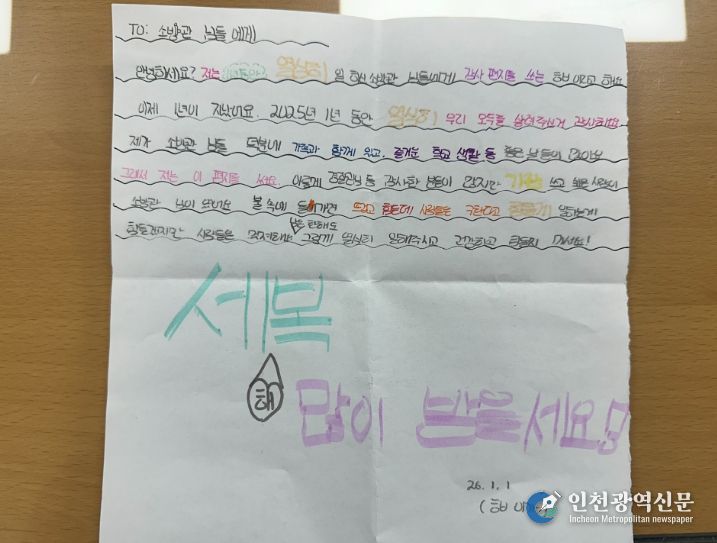 TO: 소방관 님들에게
안녕하세요? 저는 열심히 일 하신 소방관 님들에게 감사 편지를 쓰는 라고 해요
이제 1년이 지났어요. 2025년 1년 동안 열심히 우리 모두를 살려주셔서 감사해요
제가 소방관 님들 덕분에 가족과 함께 있고, 즐거운 학교 생활 등 좋은 날들이 많아요
그래서 저는 이 편지를 써요. 이렇게 경찰관님 등 감사한 분들이 많지만 가장 쓰고 싶은 사람이
소방관 님이 뜨거운 불 속에 들어가면 뜨겁고 힘든데 사람들을 구한다고 힘들게 일하는게
힘들겠지만 사람들은 걱정해서 는 편해도 그렇게 열심히 일해주시고 건강하고 다치지 마세요!
세복
해
많이 받으세요!
26.1.1
인천광역신문
Incheon Metropolitan newspaper